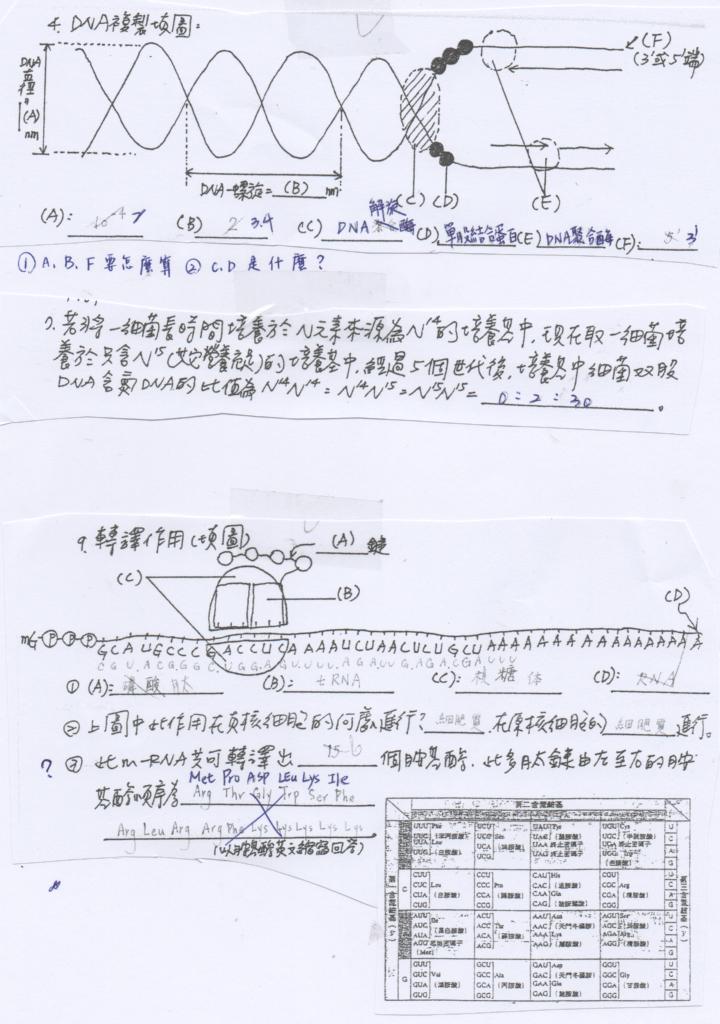 4. DNA複製填圖:
DNA直徑=(A)nm
DNA一螺旋=(B)nm
(C) (D) (E)
(F)
(3'或5'端)
(A): 2 (B) 2 3.4 (C) DNA解旋酶 (D) 單股結合蛋白 (E) DNA聚合酶 (F): 5' 3'
① A、B、F 要怎麼算 ② C.D 是什麼?
7. 若將一細菌長時間培養於N元素來源為N14的培養基中,現在取一細菌培
養於只含N15(其它營養充足)的培養基中,經過5個世代後,培養基中細菌双股
DNA含氮DNA的比值為N14N14:N14N15:N15N15= 0:2:30 。
9. 轉譯作用(填圖)
(A) 鍵
(C) (B) (D)
mG-P-P-P
GCAUGCCCGACCUCAAAAUCUAACUCUGCUAAAAAAAAAAAAAAAAAAA
① (A): 肽 (B): tRNA (C): 核糖体 (D):
② 上圖中此作用在真核細胞的何處進行? 細胞質 在原核細胞的 細胞質 進行。
? ③ 此m-RNA共可轉譯出 6 個胺基酸,此多肽鏈由左至右的胺
Met Pro Asp Leu Lys Ile
基酸順序為 Arg Thr Gly Trp Ser Phe
Arg Leu Arg Arg Phe Lys Lys Lys Lys Lys
(以胺基酸英文縮寫回答)
第二含氮鹼基
UUU Phe UCU UAU Tyr UGU Cys U
UUC (苯丙胺酸) UCC Ser UAC (酪胺酸) UGC (半胱胺酸) C
UUA Leu UCA (絲胺酸) UAA 終止密碼子 UGA 終止密碼子 A
UUG (白胺酸) UCG UAG 終止密碼子 UGG Trp G
C
CUU CCU CAU His CGU U
CUC Leu CCC Pro CAC (組胺酸) CGC Arg C
CUA (白胺酸) CCA (脯胺酸) CAA Gln CGA (精胺酸) A
CUG CCG CAG CGG G
AUU Ile ACU AAU Asn AGU Ser U
AUC ACC Thr AAC (天門冬醯胺) AGC (絲胺酸) C
AUA ACA AAA Lys AGA Arg A
AUG (Met) ACG AAG (離胺酸) AGG (精胺酸) G
G
GUU GCU GAU Asp GGU U
GUC Val GCC Ala GAC (天門冬胺酸) GGC Gly C
GUA (纈胺酸) GCA (丙胺酸) GAA Glu GGA (甘胺酸) A
GUG GCG GAG (麩胺酸) GGG G